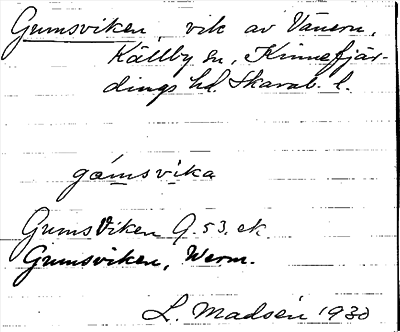 Gumsviken, vik av Vänern,
Källby sn, Kinnefjär-
dings hd. Skarab. l.
gómsvika
GumsViken G. 53. ek
Gumsviken, Werm.
L. Madsén 1930